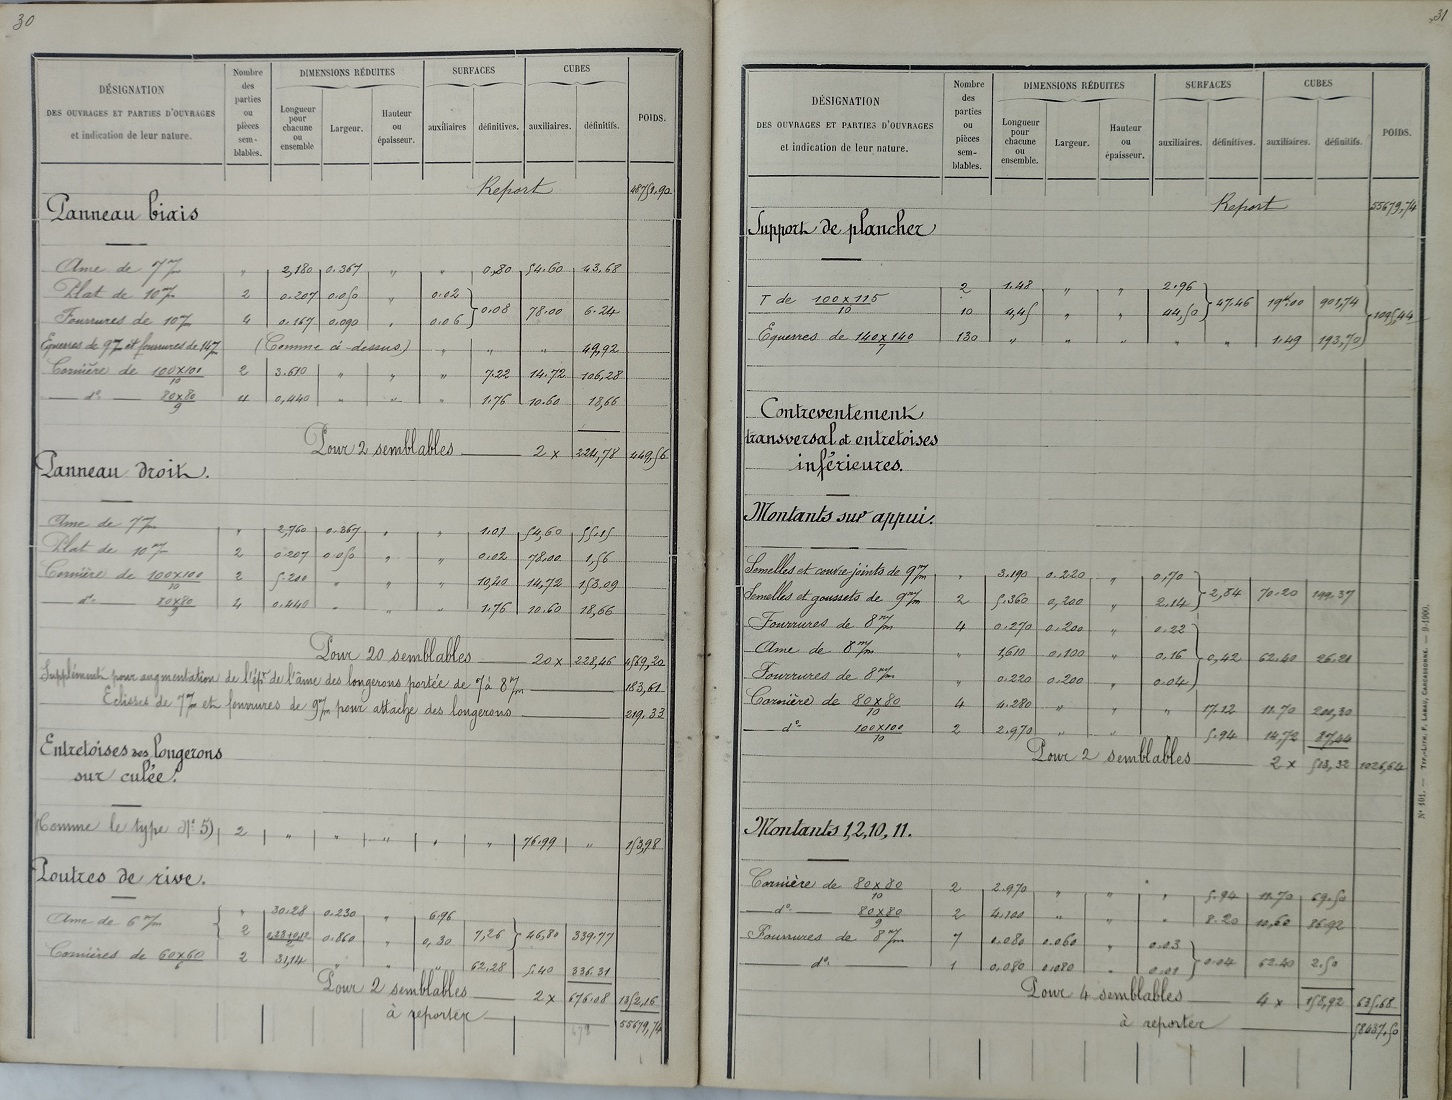 30
DÉSIGNATION DES OUVRAGES ET PARTIES D'OUVRAGES et indication de leur nature.
Nombre des parties ou pièces semblables.
DIMENSIONS RÉDUITES
Longueur pour chacune ou ensemble
Largeur.
Hauteur ou épaisseur.
SURFACES
auxiliaires.
définitives.
CUBES
auxiliaires.
définitifs.
POIDS.
Report 48751.90
Panneau biais
Ame de 7 m/m " 2,180 0.367 " " 0,80 54.60 43,68
Plat de 10 m/m 2 0.207 0.050 " 0.02
Fourrures de 10 m/m 4 0.167 0.090 " 0.06 0.08 78.00 6.24
Equerres de 9 m/m et fourrures de 14 m/m (Comme ci-dessus) " " " 49,92
Cornière de 100x100/10 2 3.610 " " 7.22 14.72 106,28
d° 80x80/9 4 0,440 " " 1.76 10.60 18,66
Pour 2 semblables 2 x 224,78 449,56
Panneau droit.
Ame de 7 m/m " 2,760 0.367 " " 1.01 54,60 55.15
Plat de 10 m/m 2 0.207 0.050 " " 0.02 78.00 1,56
Cornière de 100x100/10 2 5.200 " " " 10,40 14,72 153.09
d° 80x80/9 4 0.440 " " " 1.76 10.60 18,66
Pour 20 semblables 20 x 228,46 4569,20
Supplément pour augmentation de l'épr de l'âme des longerons portée de 7 à 8 m/m 183,61
Eclisses de 7 m/m et fourrures de 9 m/m pour attache des longerons 219.33
Entretoises des longerons
sur culée.
(Comme le type N° 5) 2 " " " " " 76.99 " 153,98
Poutres de rive.
" 30.28 0.230 " 6.96
Ame de 6 m/m 2 0.860 " 0,30 7,26 46,80 339.77
Cornières de 60x60/6 2 31,14 " " " 62.28 5.40 336.31
Pour 2 semblables 2 x 676.08 1352,16
à reporter 55679,74
31
DÉSIGNATION DES OUVRAGES ET PARTIES D'OUVRAGES et indication de leur nature.
Nombre des parties ou pièces semblables.
DIMENSIONS RÉDUITES
Longueur pour chacune ou ensemble.
Largeur.
Hauteur ou épaisseur.
SURFACES
auxiliaires.
définitives.
CUBES
auxiliaires.
définitifs.
POIDS.
Report 55679,74
Support de plancher
2 1.48 " " 2.96
T de 100x115/10 10 4,45 " " 44,50 47.46 19k00 901,74
Equerres de 140x140/7 130 " " " " " 1.49 193,70 1095,44
Contreventement
transversal et entretoises
inférieures.
Montants sur appui.
Semelles et couvre-joints de 9 m/m " 3.190 0.220 " 0,70
Semelles et goussets de 9 m/m 2 5.360 0,200 " 2.14 2,84 70.20 199.37
Fourrures de 8 m/m 4 0.270 0.200 " 0.22
Ame de 8 m/m " 1,610 0,100 " 0,16 0,42 62.40 26.21
Fourrures de 8 m/m " 0.220 0.200 " 0.04
Cornière de 80x80/10 4 4.280 " " 17.12 11.70 200,30
d° 100x100/10 2 2.970 " " 5.94 14,72 87,44
Pour 2 semblables 2 x 513,32 1026,64
Montants 1,2,10,11.
Cornière de 80x80/10 2 2.970 " " " 5.94 11.70 69.50
d° 80x80/9 2 4.100 " " " 8.20 10,60 86.92
Fourrures de 8 m/m 7 0.080 0.060 " 0.03
d° 1 0,080 0,080 " 0.01 0.04 62.40 2.50
Pour 4 semblables 4 x 158,92 635.68
à reporter 58437,50
N° 101. — Typ.-Lith. F. Labau, Carcassonne. — 9-1900.